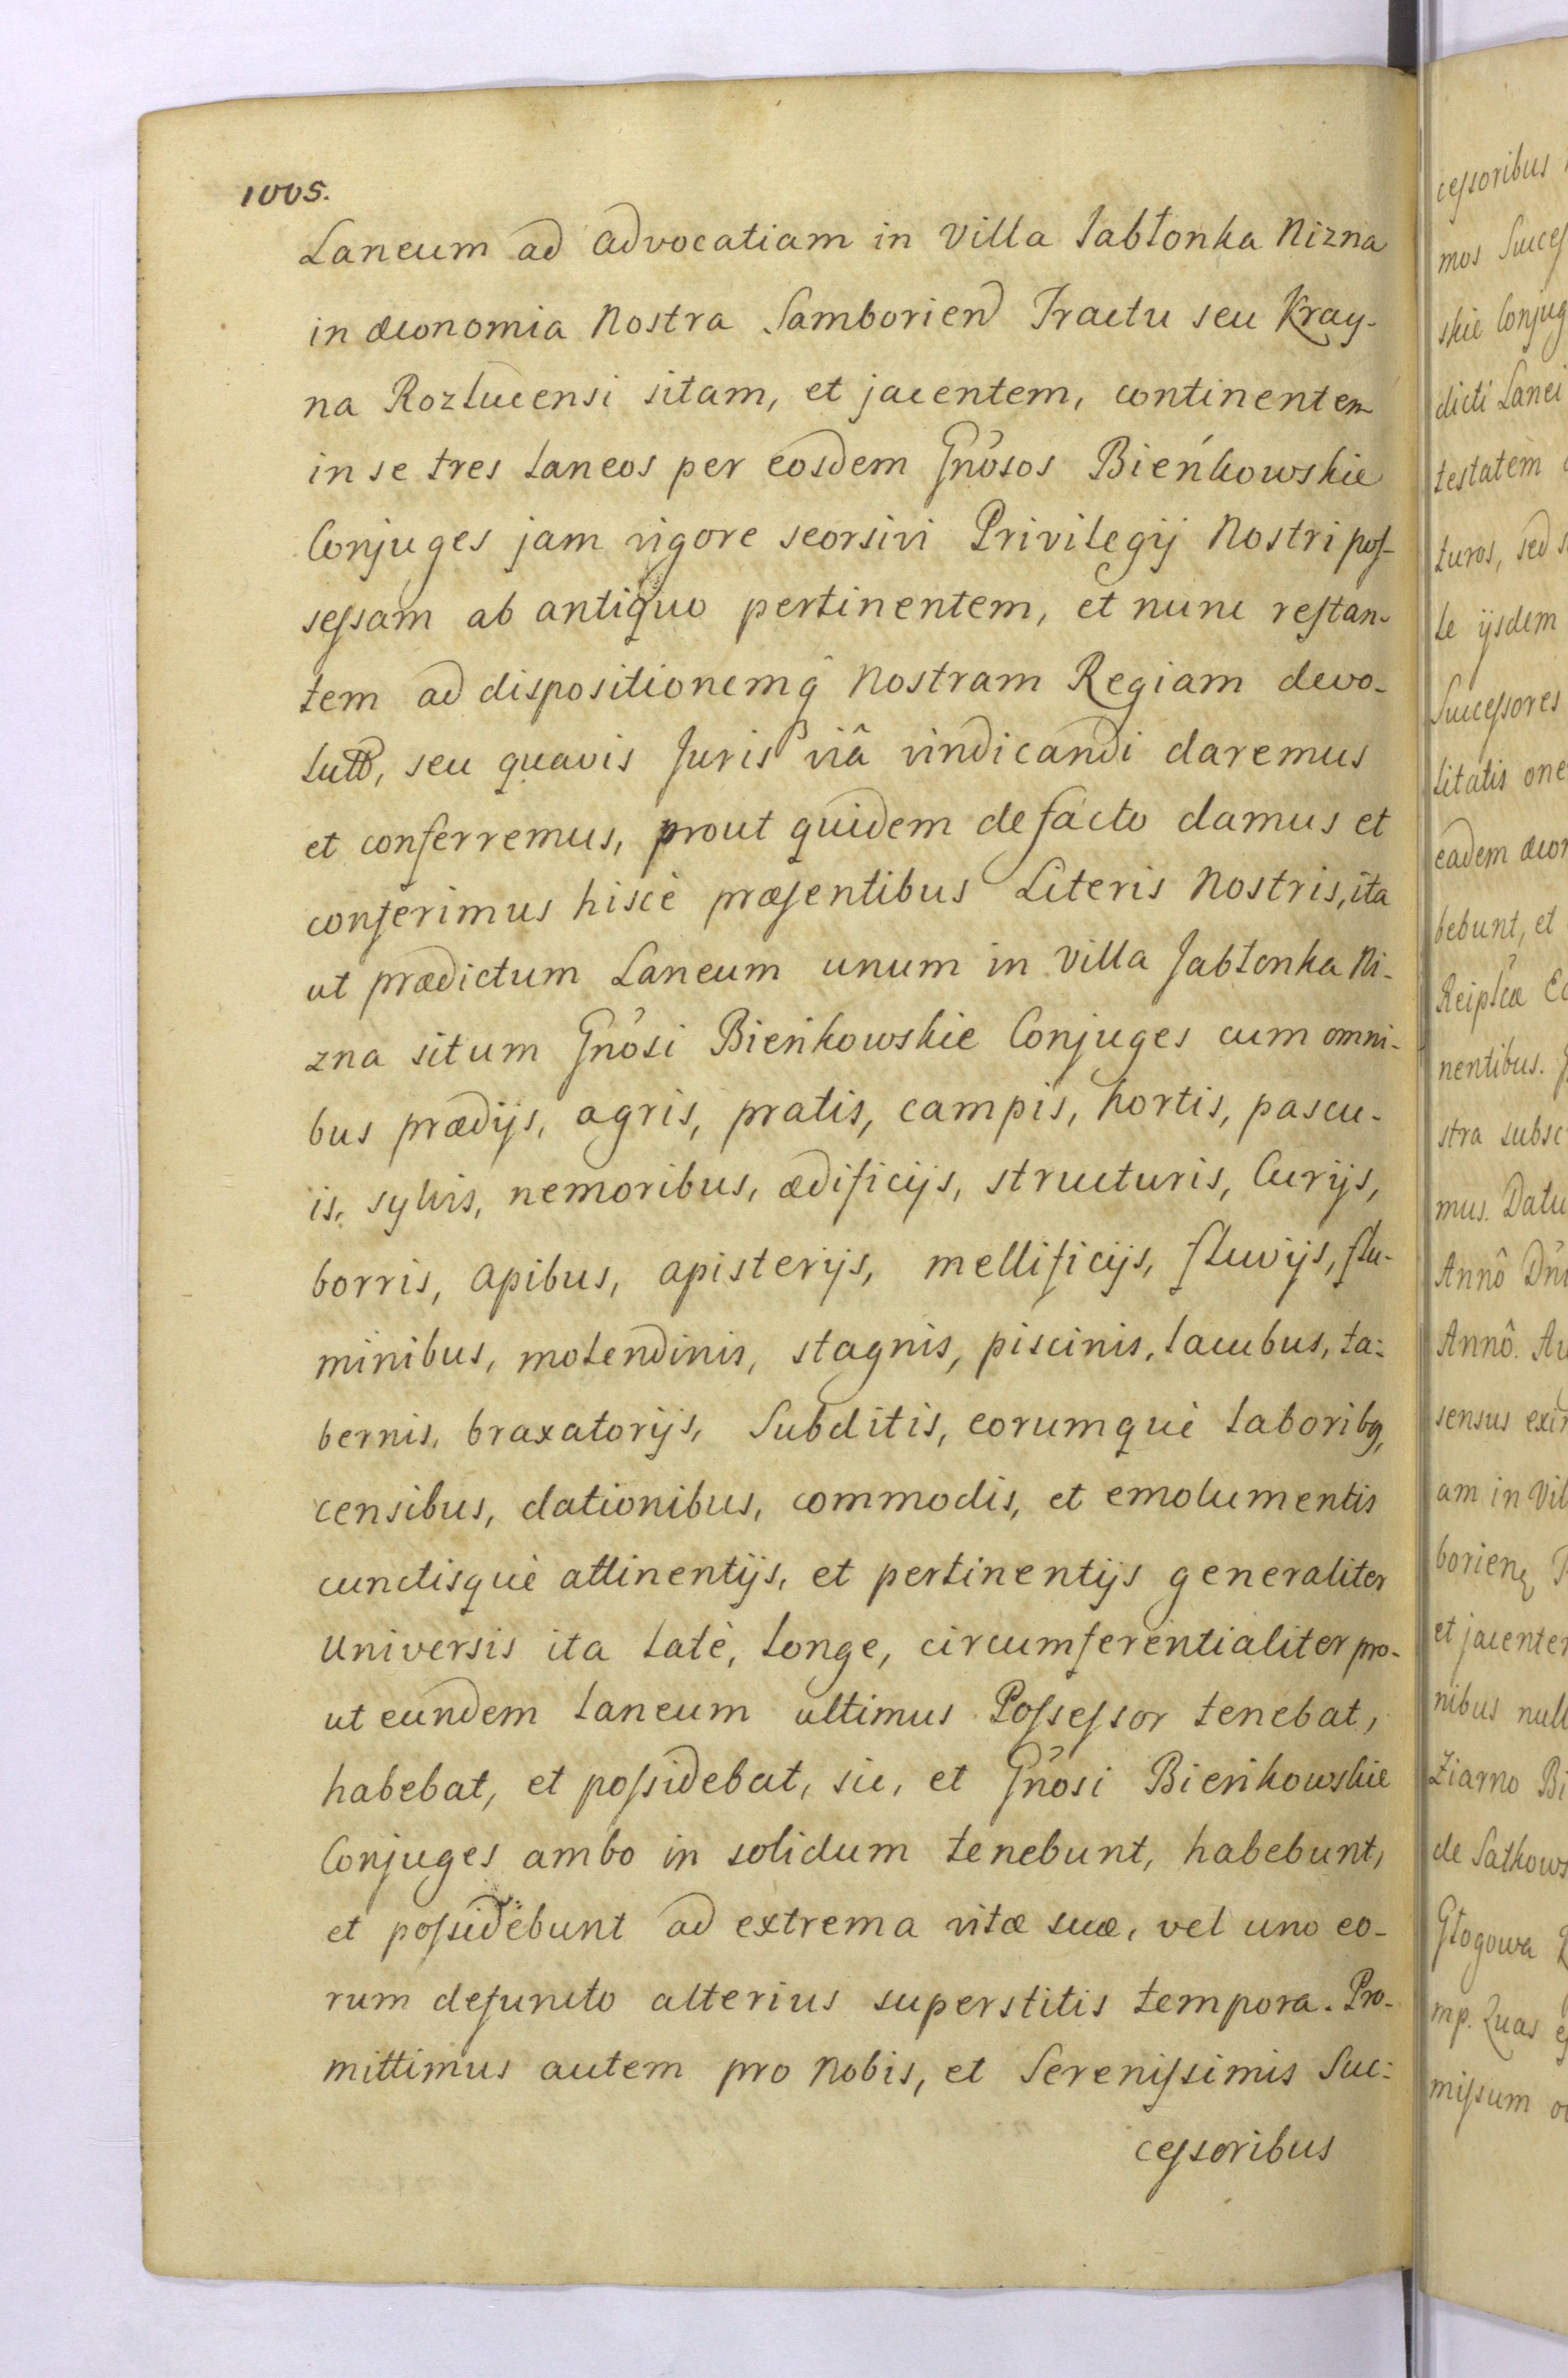 1005.
Laneum ad advocatiam in Villa Jabłonka Nizna
in œconomia Nostra Samborien Tractu seu Kray-
na Rozłucensi sitam, et jacentem, continentem
in se tres laneos per eosdem Gn̄osos Bieńkowskie
Conjuges jam vigore seorsivi Privilegij Nostri pos-
sessam ab antiquo pertinentem, et nunc restan-
tem ad dispositionemq̄ Nostram Regiam devo-
lutō, seu quavis Juris viâ vindicandi daremus
et conferremus, prout quidem de facto damus et
conferimus hiscè præsentibus Literis Nostris, ita
ut prædictum Laneum unum in Villa Jabłonka Ni-
zna situm Gn̄osi Bieńkowskie Conjuges cum omni-
bus prædijs, agris, pratis, campis, hortis, pascu-
is, sylvis, nemoribus, ædificijs, structuris, Curijs,
borris, apibus, apisterijs, mellificijs, fluvijs, flu-
minibus, molendinis, stagnis, piscinis, lacubus, ta-
bernis, braxatorijs, Subditis, eorumquè laboribq,
censibus, dationibus, commodis, et emolumentis
cunctisquè attinentijs, et pertinentijs generaliter
Universis ita latè, longe, circumferentialiter pro-
ut eundem laneum ultimus Possessor tenebat,
habebat, et possidebat, sic, et Gn̄osi Bieńkowskie
Conjuges ambo in solidum tenebunt, habebunt,
et possidebunt ad extrema vitæ suæ, vel uno eo-
rum defuncto alterius superstitis tempora. Pro-
mittimus autem pro Nobis, et Serenissimis Suc-
cessoribus
cessoribus
mos Succes
skie Conjug
dicti Lanei
testatem
turos, sed
le ijsdem
Successores
litatis one
eadem œcon
bebunt, et
Reiplcæ Ec
nentibus.
stra subsc
mus. Datu
Annô Dn̄i
Annô. Au
sensus exin
am in Vil
borienq
et jacenter
nibus null
Ziarno Bi
de Satkows
Głogowa
mp. Quas
missum